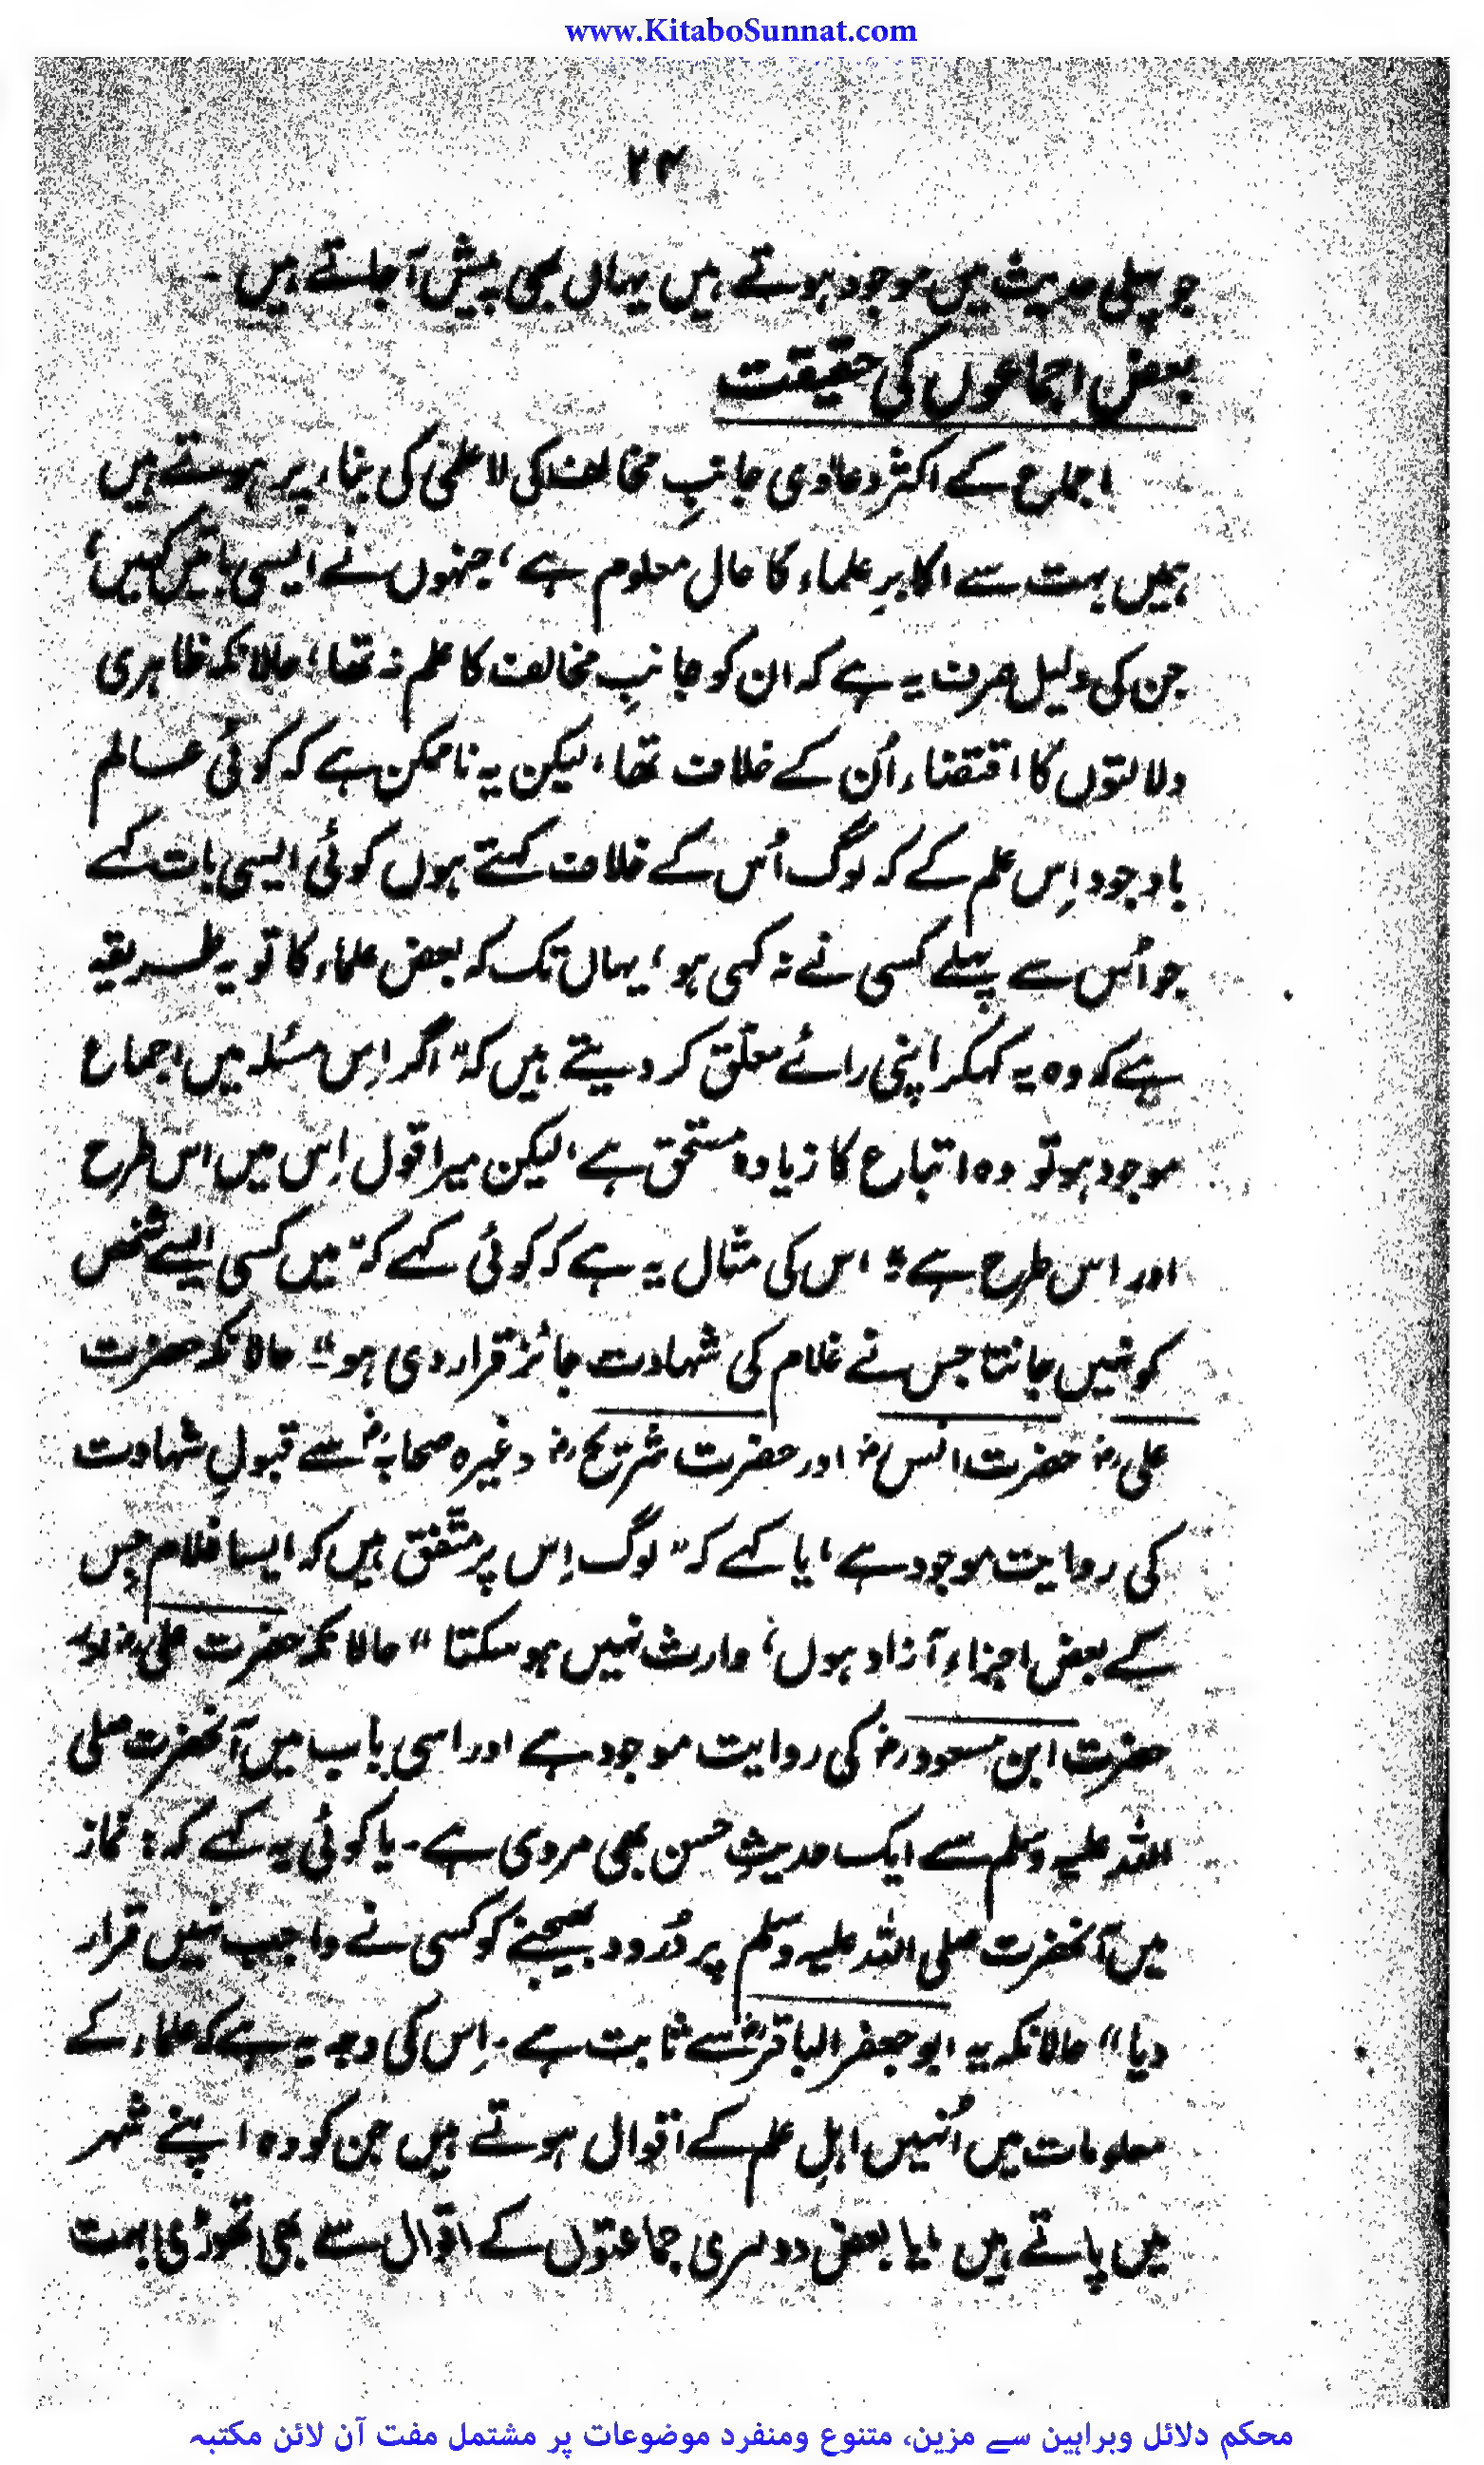 www.KitaboSunnat.com
۲۴
جو پہلی حدیث میں موجود ہوتے ہیں یہاں بھی پیش آجاتے ہیں ۔
بعض اجماعوں کی حقیقت
اجماع کے اکثر دعاوی جانبِ مخالف کی لاعلمی کی بناء پر ہوتے ہیں
ہمیں بہت سے اکابرِ علماء کا حال معلوم ہے، جنہوں نے ایسی باتیں کہیں،
جن کی دلیل صرف یہ ہے کہ ان کو جانبِ مخالف کا علم نہ تھا، حالانکہ ظاہری
دلالتوں کا اقتضاء اُن کے خلاف تھا، لیکن یہ ناممکن ہے کہ کوئی عالم
باوجود اِس علم کے کہ لوگ اُس کے خلاف کہتے ہوں کوئی ایسی بات کہے
جو اُس سے پہلے کسی نے نہ کہی ہو، یہاں تک کہ بعض علماء کا تو یہ طریقہ
ہے کہ وہ یہ کہکر اپنی رائے معلّق کر دیتے ہیں کہ "اگر اِس مسئلہ میں اجماع
موجود ہو تو وہ اتباع کا زیادہ مستحق ہے، لیکن میرا قول اِس میں اس طرح
اور اس طرح ہے" اس کی مثال یہ ہے کہ کوئی کہے کہ "میں کسی ایسے شخص
کو نہیں جانتا جس نے غلام کی شہادت جائز قرار دی ہو" حالانکہ حضرت
علی رض حضرت انس رض اور حضرت شریح رض وغیرہ صحابہ رض سے قبولِ شہادت
کی روایت موجود ہے، یا کہے کہ "لوگ اِس پر متّفق ہیں کہ ایسا غلام جس
کے بعض اجزاء آزاد ہوں، وارث نہیں ہو سکتا" حالانکہ حضرت علی رض اور
حضرت ابن مسعود رض کی روایت موجود ہے اور اسی باب میں آنحضرت صلی
اللہ علیہ وسلم سے ایک حدیثِ حسن بھی مروی ہے ۔ یا کوئی یہ کہے کہ: نماز
میں آنحضرت صلی اللہ علیہ وسلم پر دُرود بھیجنے کو کسی نے واجب نہیں قرار
دیا" حالانکہ یہ ابو جعفر الباقرؓ سے ثابت ہے ۔ اِس کی وجہ یہ ہے کہ علماء کے
معلومات میں اُنہیں اہلِ علم کے اقوال ہوتے ہیں جن کو وہ اپنے شہر
میں پاتے ہیں ، یا بعض دوسری جماعتوں کے اقوال سے بھی تھوڑی بہت
محکم دلائل وبراہین سے مزین، متنوع ومنفرد موضوعات پر مشتمل مفت آن لائن مکتبہ